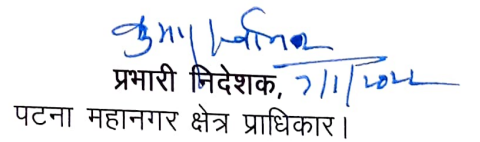 प्रभारी निदेशक, 7/1/2022
पटना महानगर क्षेत्र प्राधिकार।